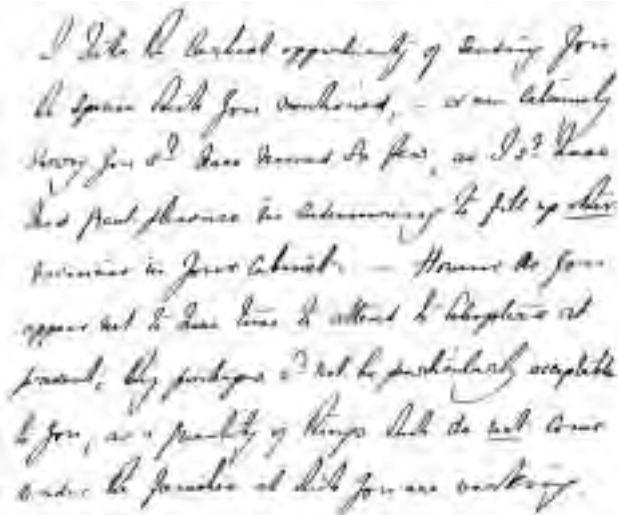 I take the Earliest opportunity of sending You
the species which You mentioned, – & am extremely
Sorry You sd. have named so few, as I sd. have
had great pleasure in endeavouring to fill up other
in Your Cabinet. — However as You
appear not to have time to attend to Coleoptera at
present, they perhaps wd. not be particularly acceptable
to You, as a quantity of things which do not come
under the families at which You are working.